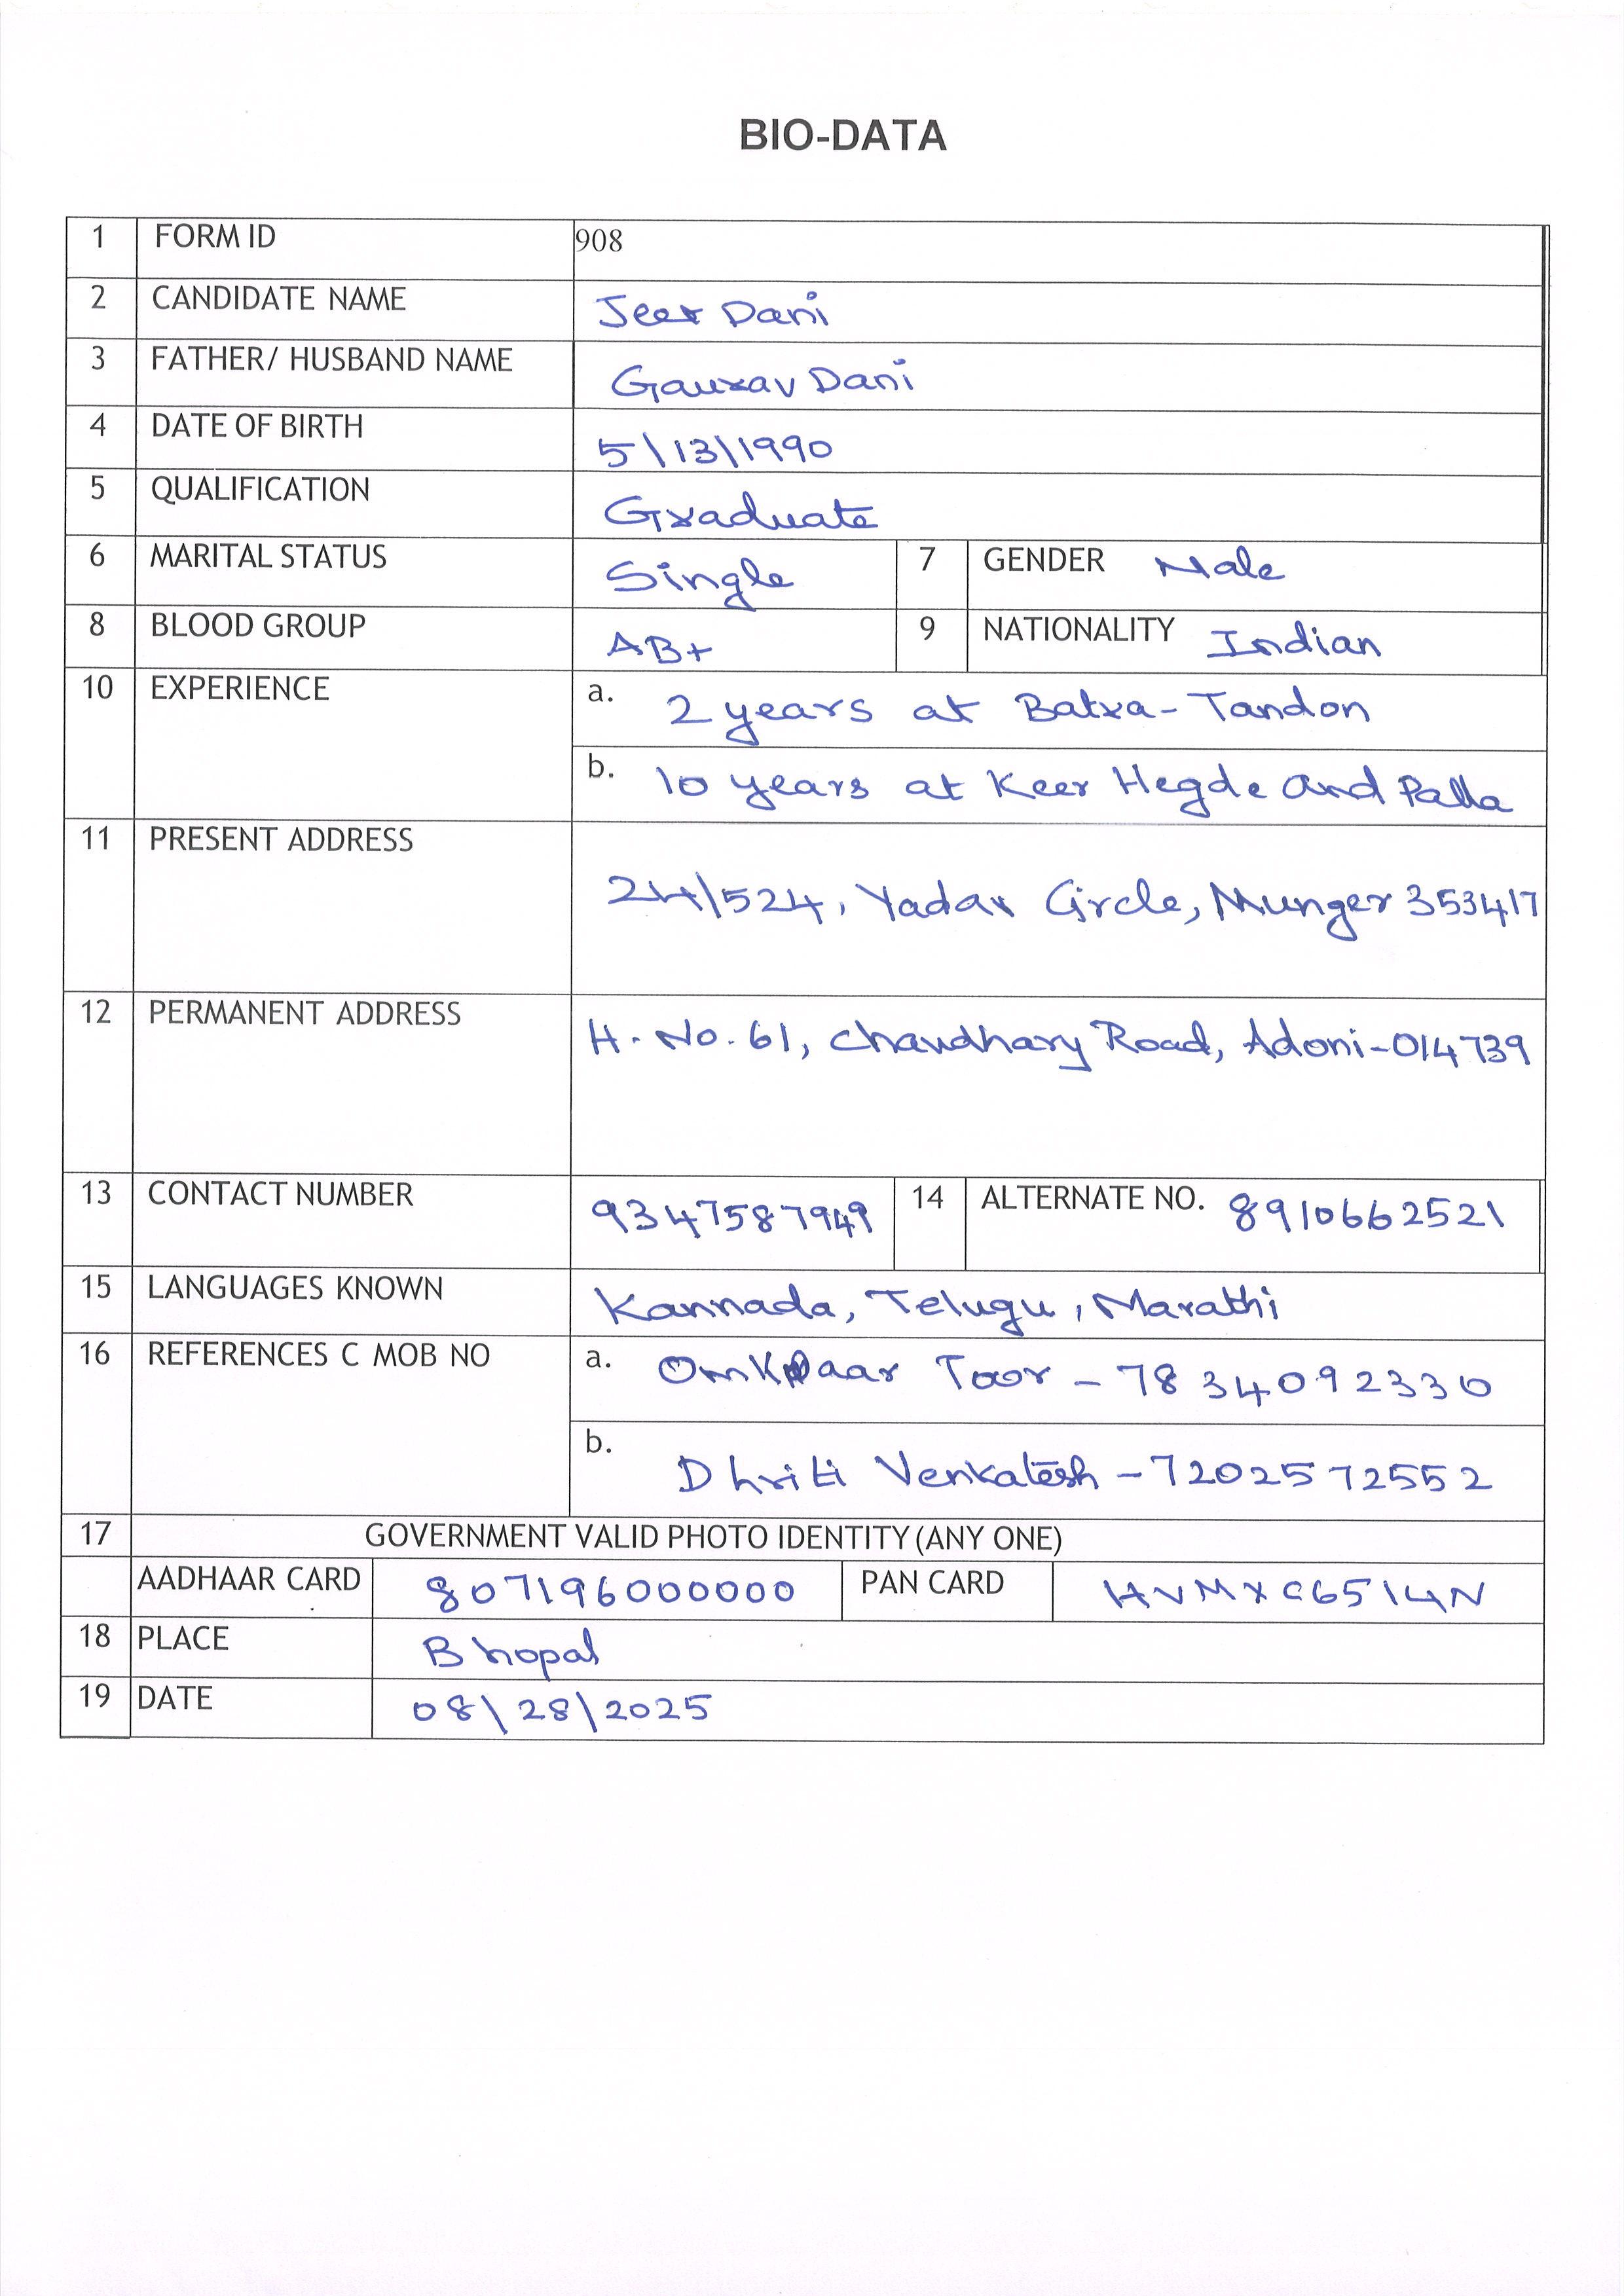 BIO-DATA
1 FORM ID 908
2 CANDIDATE NAME Jeer Dani
3 FATHER/ HUSBAND NAME Gaurav Dani
4 DATE OF BIRTH 5\13\1990
5 QUALIFICATION Graduate
6 MARITAL STATUS Single 7 GENDER Male
8 BLOOD GROUP AB+ 9 NATIONALITY Indian
10 EXPERIENCE a. 2 years at Batra-Tandon
b. 10 years at Keer Hegde and Palla
11 PRESENT ADDRESS 24\524, Yadav Circle, Munger 353417
12 PERMANENT ADDRESS H. No. 61, Chaudhary Road, Adoni-014739
13 CONTACT NUMBER 9347587949 14 ALTERNATE NO. 8910662521
15 LANGUAGES KNOWN Kannada, Telugu, Marathi
16 REFERENCES C MOB NO a. Omkaar Toor - 7834092330
b. Dhriti Venkatesh - 7202572552
17 GOVERNMENT VALID PHOTO IDENTITY (ANY ONE)
AADHAAR CARD 807196000000 PAN CARD HVMXC6514N
18 PLACE Bhopal
19 DATE 08\28\2025